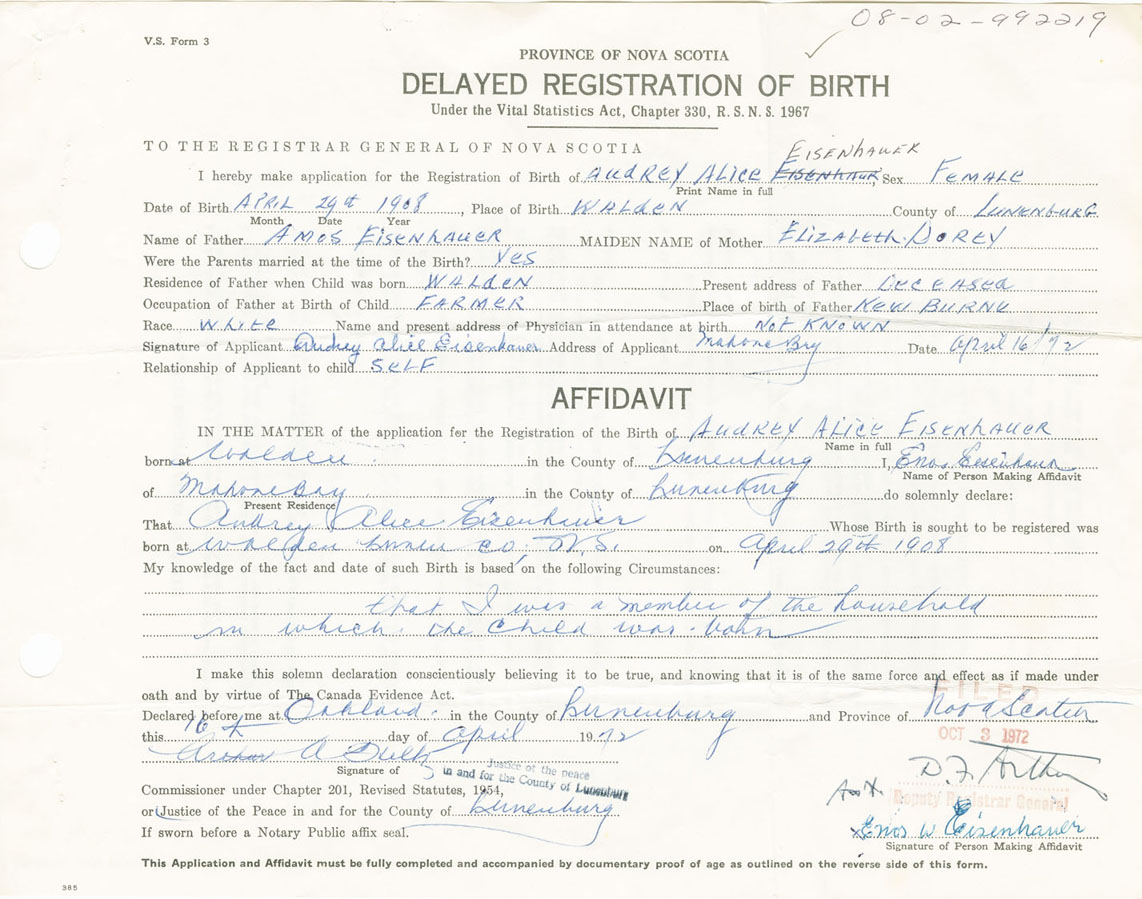 08-02-992219
V.S. Form 3
PROVINCE OF NOVA SCOTIA
DELAYED REGISTRATION OF BIRTH
Under the Vital Statistics Act, Chapter 330, R. S. N. S. 1967
TO THE REGISTRAR GENERAL OF NOVA SCOTIA
EISENHAUER
I hereby make application for the Registration of Birth of AUDREY ALICE EISENHAUR, Sex FEMALE
Print Name in full
Date of Birth APRIL 29th 1908, Place of Birth WALDEN County of LUNENBURG
Month Date Year
Name of Father AMOS EISENHAUER MAIDEN NAME of Mother ELIZABETH DOREY
Were the Parents married at the time of the Birth? YES
Residence of Father when Child was born WALDEN Present address of Father DECEASED
Occupation of Father at Birth of Child FARMER Place of birth of Father NEW BURNE
Race WHITE Name and present address of Physician in attendance at birth NOT KNOWN
Signature of Applicant Audrey Alice Eisenhauer Address of Applicant Mahone Bay Date April 16/72
Relationship of Applicant to child SELF
AFFIDAVIT
IN THE MATTER of the application for the Registration of the Birth of AUDREY ALICE EISENHAUER
Name in full
born at Walden in the County of Lunenburg I, Enos Eisenhauer
Name of Person Making Affidavit
of Mahone Bay in the County of Lunenburg do solemnly declare:
Present Residence
That Audrey Alice Eizenhauer Whose Birth is sought to be registered was
born at Walden Lunen Co, N.S. on April 29th 1908
My knowledge of the fact and date of such Birth is based on the following Circumstances:
that I was a member of the household
in which the child was born
I make this solemn declaration conscientiously believing it to be true, and knowing that it is of the same force and effect as if made under
oath and by virtue of The Canada Evidence Act.
FILED
Declared before me at Oakland in the County of Lunenburg and Province of Nova Scotia
this 16th day of April 1972
OCT 3 1972
Arthur A
Signature of
Justice of the peace
in and for the County of Lunenburg
D. F. Arthur
Commissioner under Chapter 201, Revised Statutes, 1954,
Deputy Registrar General
or Justice of the Peace in and for the County of Lunenburg
Enos W Eisenhauer
If sworn before a Notary Public affix seal.
Signature of Person Making Affidavit
This Application and Affidavit must be fully completed and accompanied by documentary proof of age as outlined on the reverse side of this form.
385